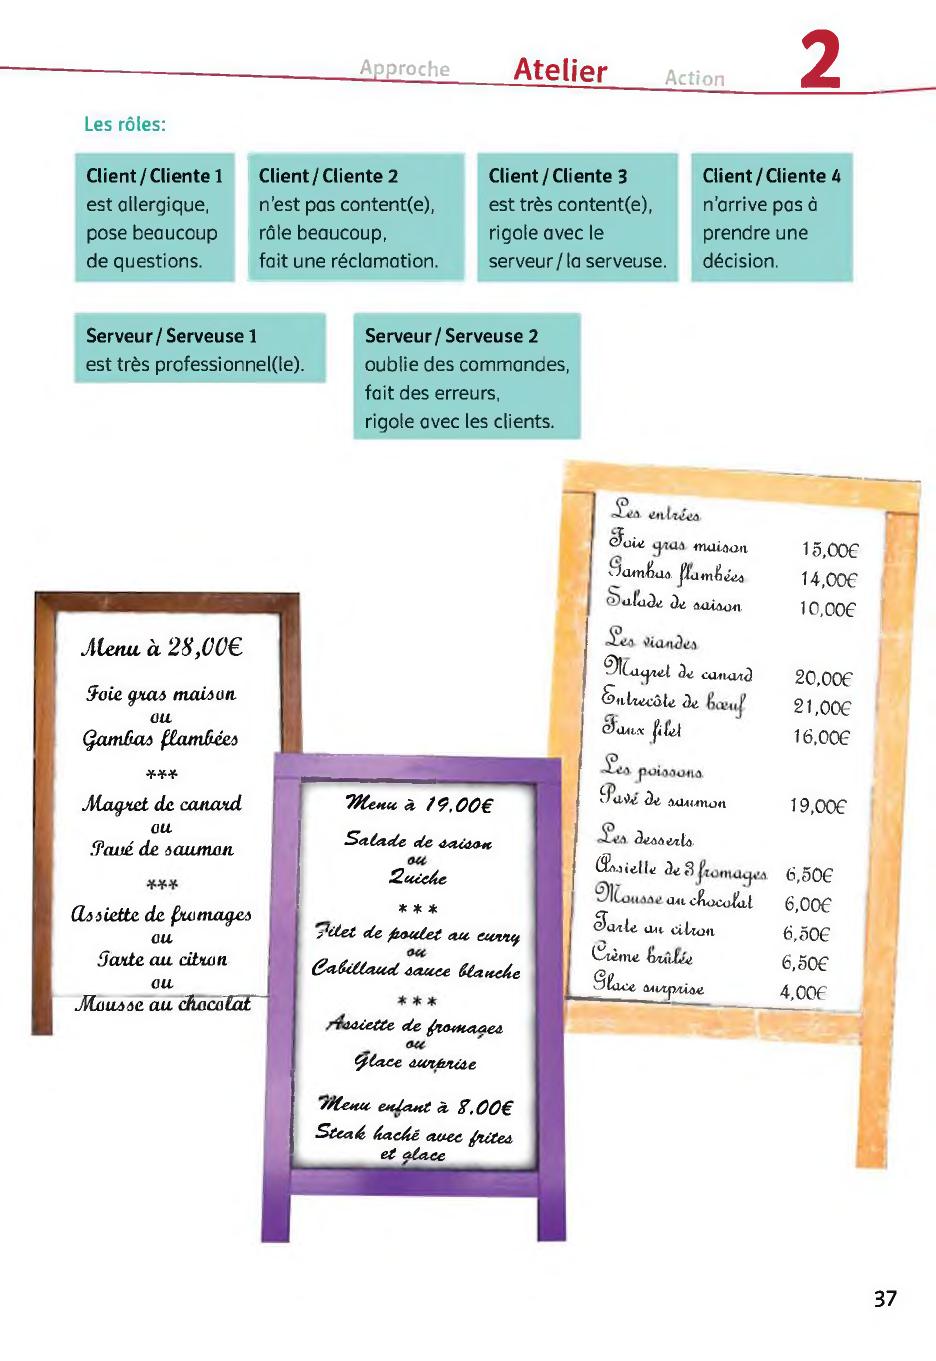 Approche Atelier Action 2
Les rôles:
Client / Cliente 1
est allergique,
pose beaucoup
de questions.
Client / Cliente 2
n'est pas content(e),
râle beaucoup,
fait une réclamation.
Client / Cliente 3
est très content(e),
rigole avec le
serveur / la serveuse.
Client / Cliente 4
n'arrive pas à
prendre une
décision.
Serveur / Serveuse 1
est très professionnel(le).
Serveur / Serveuse 2
oublie des commandes,
fait des erreurs,
rigole avec les clients.
Menu à 28,00€
Foie gras maison
ou
Gambas flambées
***
Magret de canard
ou
Pavé de saumon
***
Assiette de fromages
ou
Tarte au citron
ou
Mousse au chocolat
Menu à 19.00€
Salade de saison
ou
Quiche
***
Filet de poulet au curry
ou
Cabillaud sauce blanche
***
Assiette de fromages
ou
Glace surprise
Menu enfant à 8.00€
Steak haché avec frites
et glace
Les entrées
Foie gras maison 15,00€
Gambas flambées 14,00€
Salade de saison 10,00€
Les viandes
Magret de canard 20,00€
Entrecôte de bœuf 21,00€
Faux filet 16,00€
Les poissons
Pavé de saumon 19,00€
Les desserts
Assiette de 3 fromages 6,50€
Mousse au chocolat 6,00€
Tarte au citron 6,50€
Crème brûlée 6,50€
Glace surprise 4,00€
37